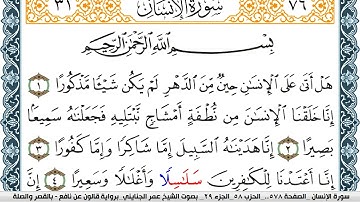 ٣١ سُورَةُ الْإِنسَانِ ٧٦
بِسْمِ اللَّهِ الرَّحْمَٰنِ الرَّحِيمِ
هَلْ أَتَىٰ عَلَى الْإِنسَانِ حِينٌ مِّنَ الدَّهْرِ لَمْ يَكُن شَيْئًا مَّذْكُورًا ١
إِنَّا خَلَقْنَا الْإِنسَانَ مِن نُّطْفَةٍ أَمْشَاجٍ نَّبْتَلِيهِ فَجَعَلْنَاهُ سَمِيعًا
بَصِيرًا ٢ إِنَّا هَدَيْنَاهُ السَّبِيلَ إِمَّا شَاكِرًا وَإِمَّا كَفُورًا ٣
إِنَّا أَعْتَدْنَا لِلْكَافِرِينَ سَلَاسِلًا وَأَغْلَالًا وَسَعِيرًا ٤ إِنَّ
سورة الإنسان _ الصفحة ٥٧٨ _ الحزب ٥٨ _ الجزء ٢٩ _ بصوت الشيخ عمر الجنايني _ برواية قالون عن نافع - بالقصر والصلة